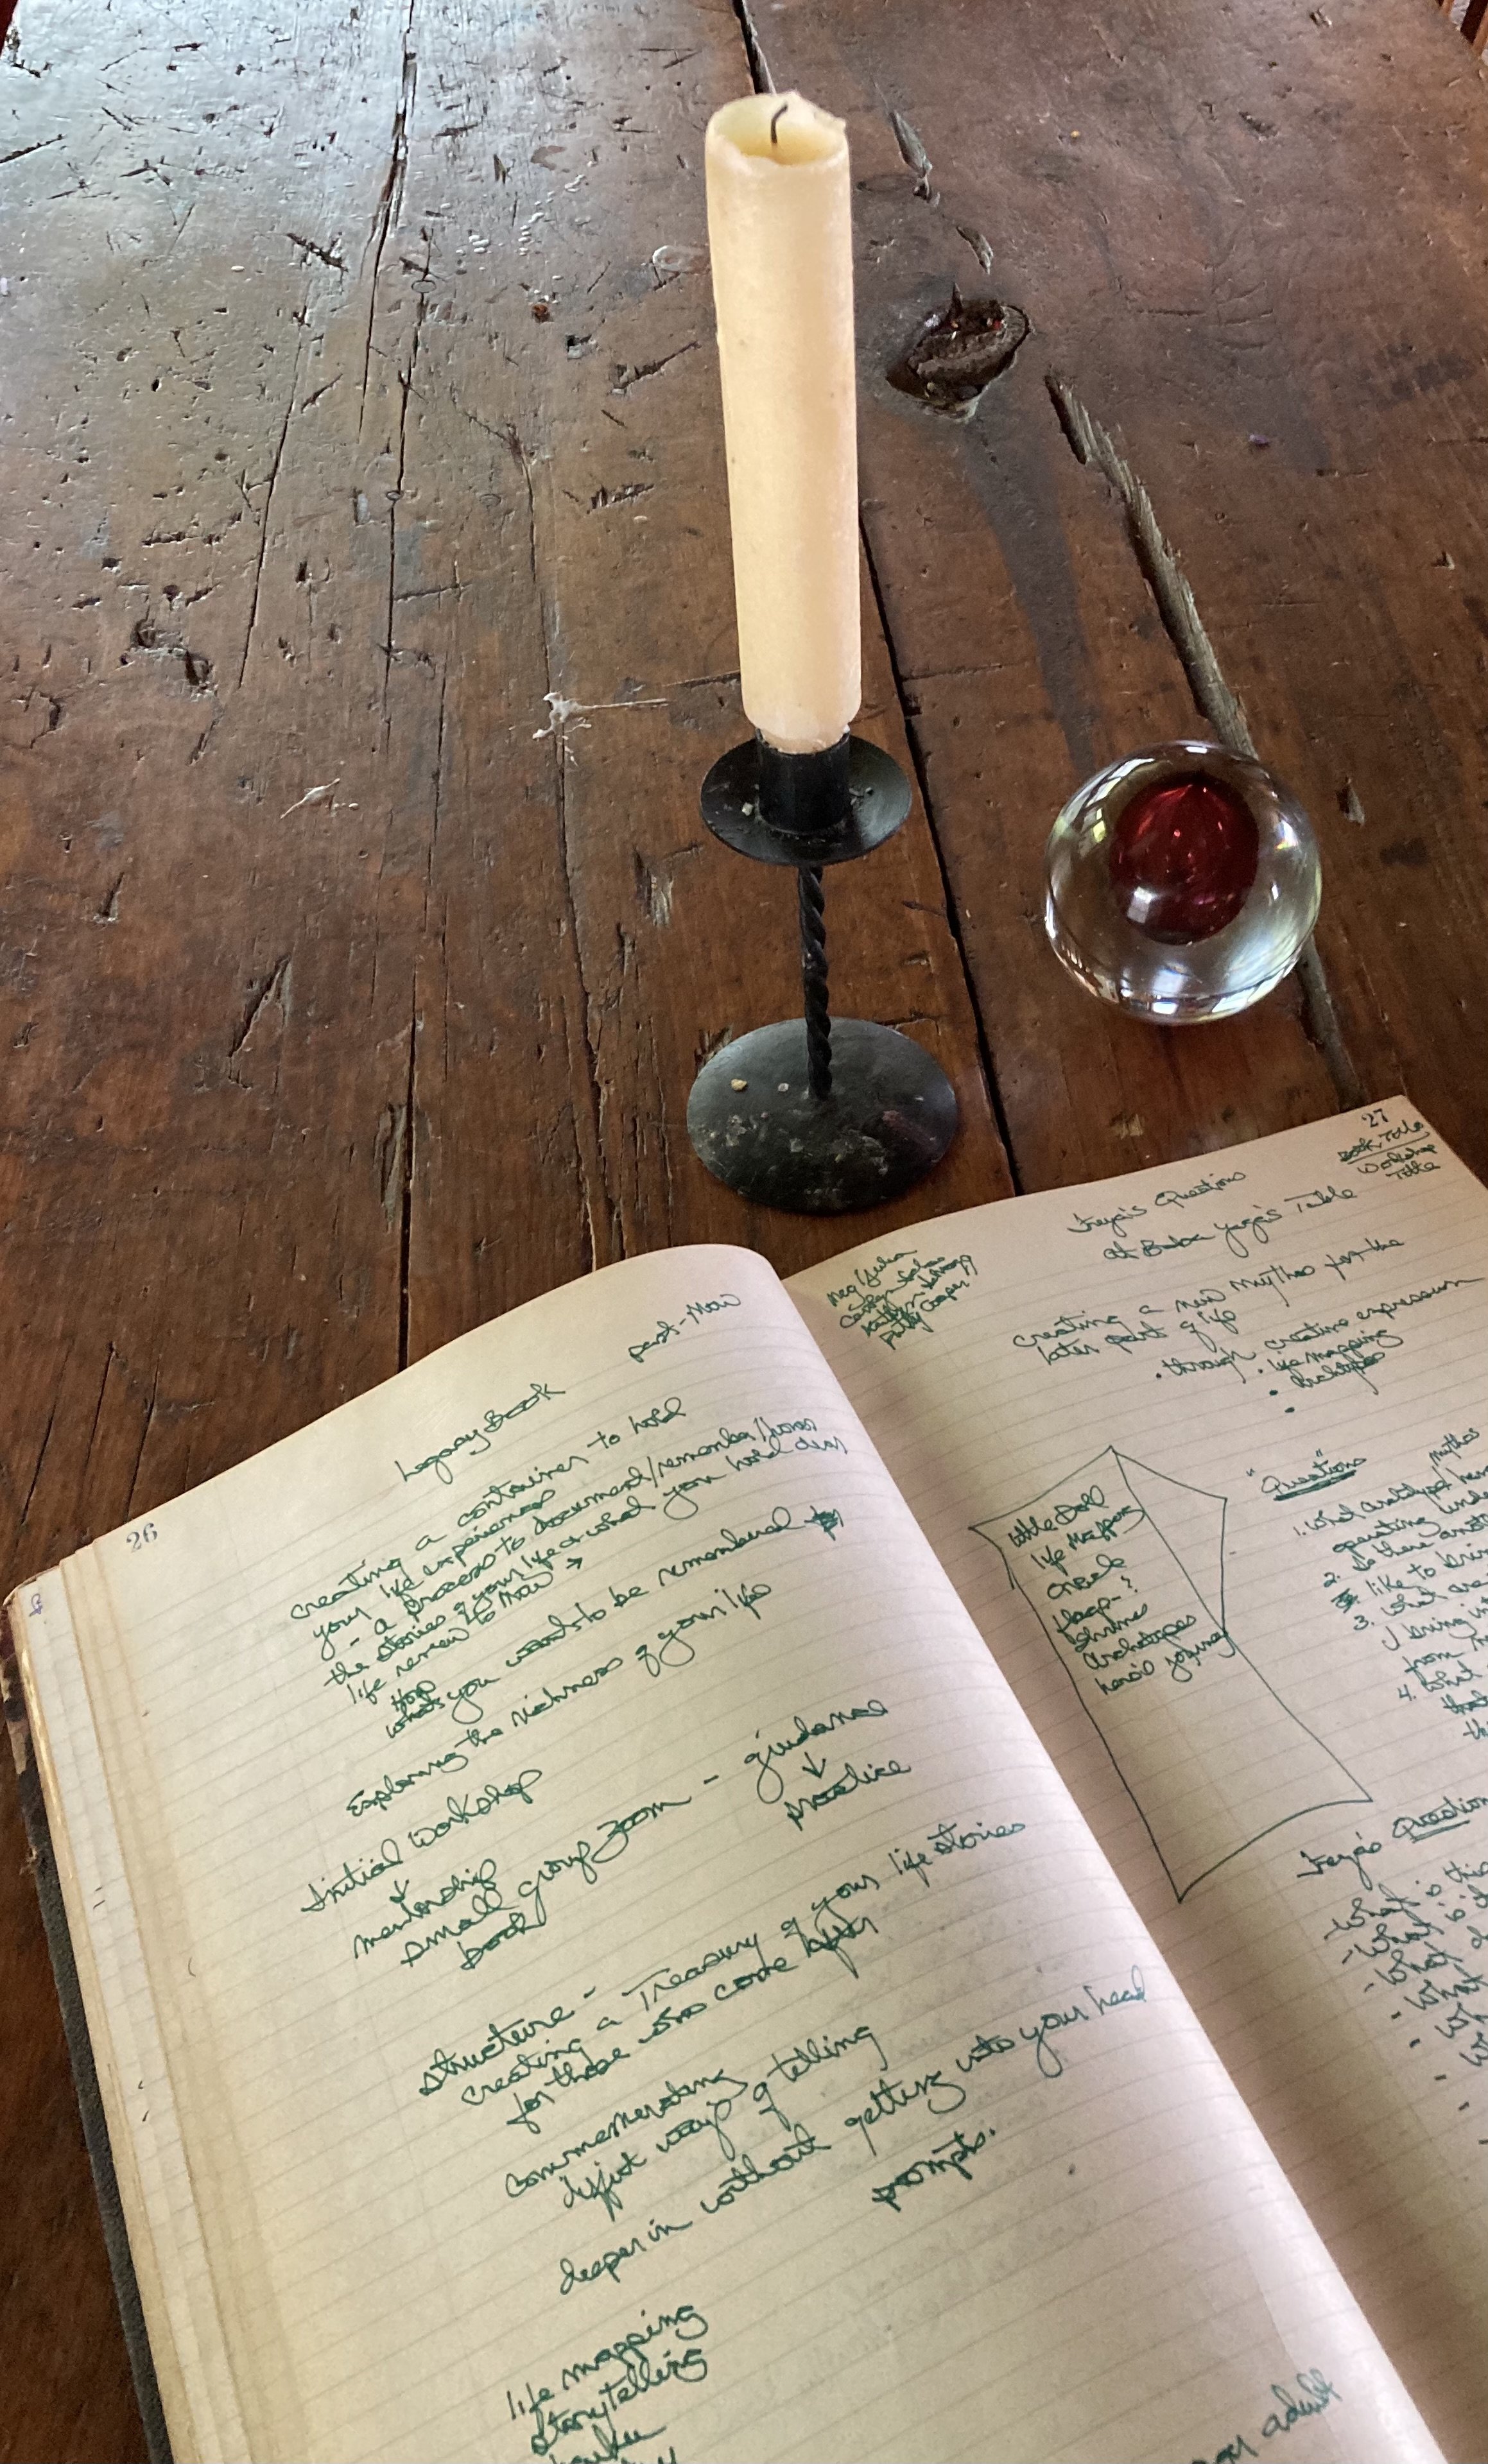 26
past-Now
Legacy Book
creating a container to hold
your life experiences
- a process to document/remember/honor
the stories of your life or what you hold dear
life review to Now →
How
what you want to be remembered
Exploring the richness of your life
Initial Workshop
↓
mentorship
small group zoom - guidance
↓
practice
book
structure -
creating a Treasury of your life stories
for those who come after
commemorating
diffrnt ways of telling
deeper in without getting into your head
prompts.
life mapping
storytelling
haiku
27
Book Title
Workshop
Title
Freya's Questions
at Baba Yaga's Table
Meg/Julia
Patty Cooper
creating a new mythos for the
later part of life
• through • creative expression
• life mapping
• Archetypes
•
Little Doll
life mapping
oracle
?
shrines
archetypes
hero's journey
"Questions"
mythos
1. What archetype
operating under
2. Is there another
like to bring
3. What are
I bring into
from
4. What
that
Freya's Question
- What is this
- What is
- What
- What
adult